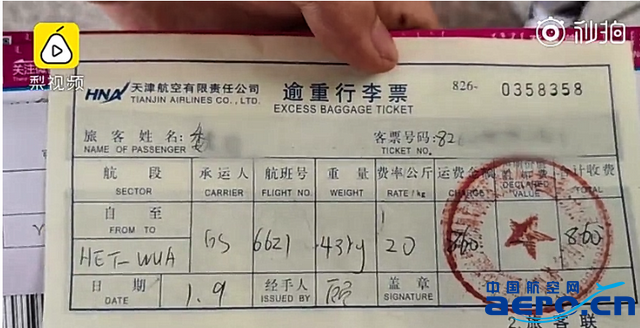 秒拍
关注微
梨视频
HNA 天津航空有限责任公司 TIANJIN AIRLINES CO., LTD.
逾重行李票
EXCESS BAGGAGE TICKET
826- 0358358
旅客姓名:
NAME OF PASSENGER
客票号码: 82
TICKET NO.
航段 承运人 航班号 重量 费率公斤 运费金额 合计收费
SECTOR CARRIER FLIGHT NO. WEIGHT RATE/kg CHARGE DECLARED VALUE TOTAL
自 至
FROM TO
HET-WUA GS 6621 43kg 20 860 860
日期 1.9 经手人 盖章
DATE ISSUED BY SIGNATURE
中国航空网
aero.cn
2.旅客联